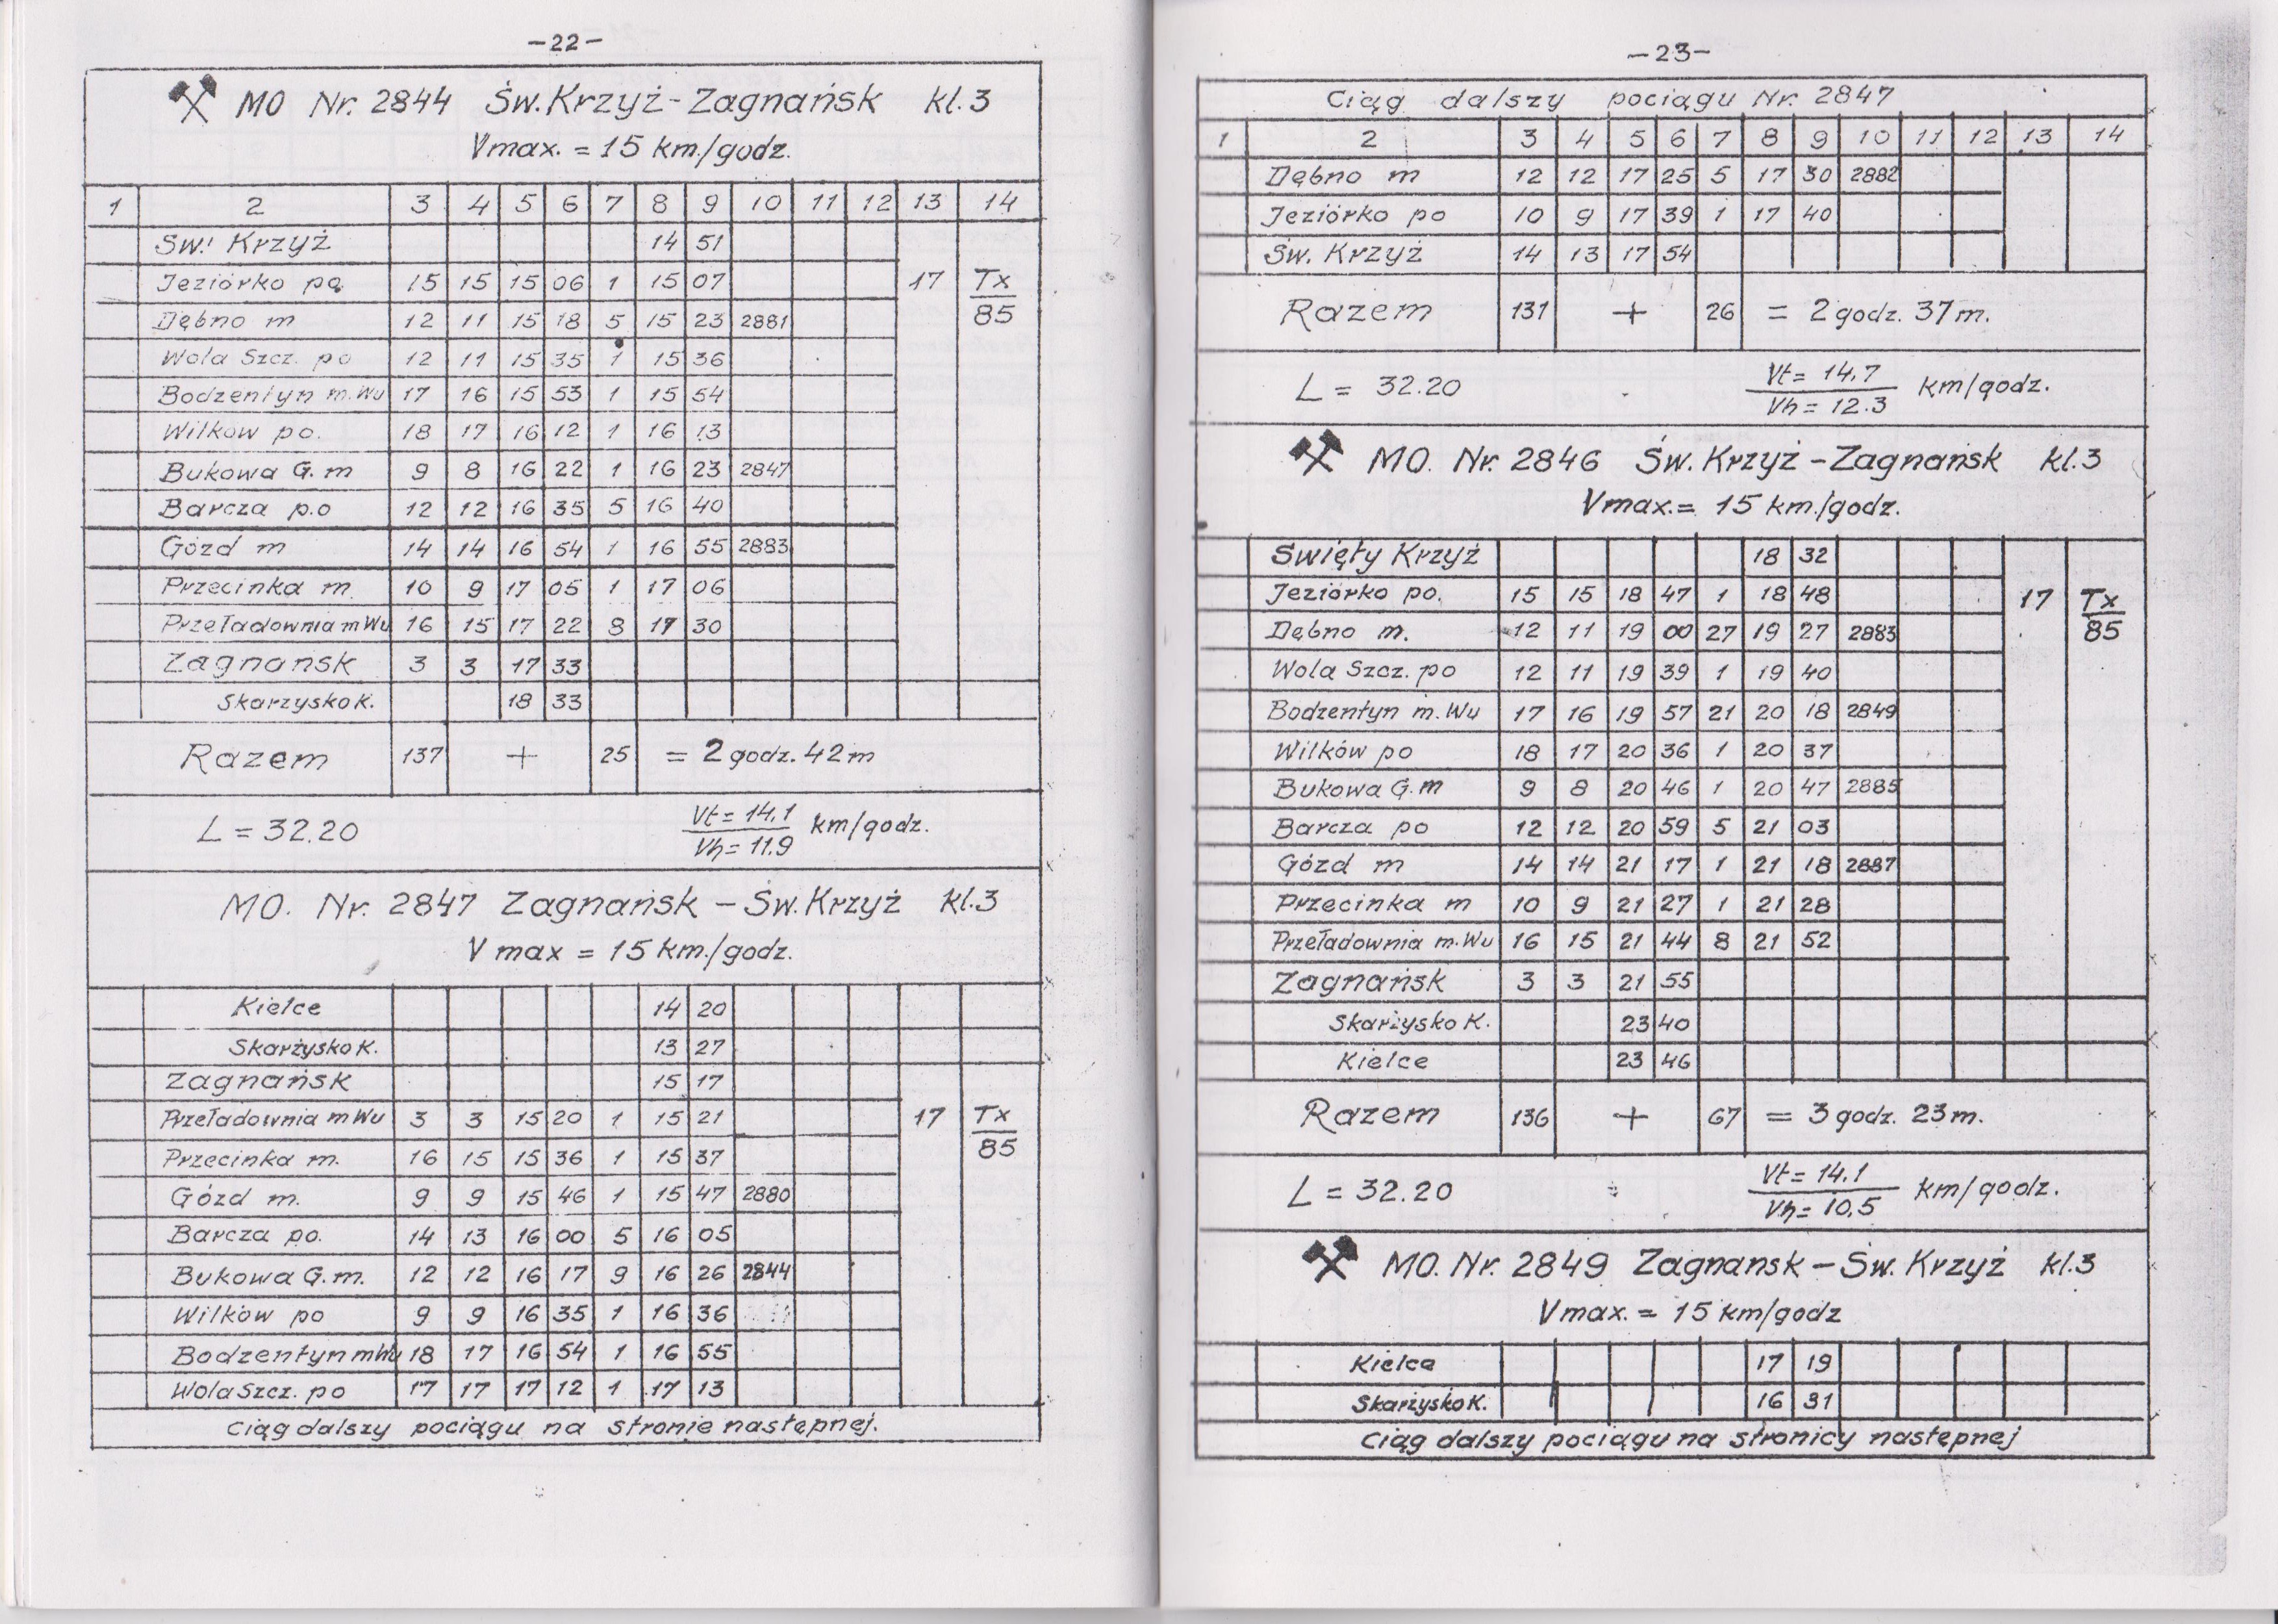 -22-
MO Nr. 2844 Św. Krzyż - Zagnańsk kl.3
Vmax. = 15 km./godz.
1 2 3 4 5 6 7 8 9 10 11 12 13 14
Św. Krzyż 14 51
Jeziórko po 15 15 15 06 1 15 07 17 Tx
85
Dębno m 12 11 15 18 5 15 23 2881
Wola Szcz. po 12 11 15 35 1 15 36
Bodzentyn m.Wu 17 16 15 53 1 15 54
Wilków po. 18 17 16 12 1 16 13
Bukowa G. m 9 8 16 22 1 16 23 2847
Barcza p.o 12 12 16 35 5 16 40
Gózd m 14 14 16 54 1 16 55 2883
Przecinka m. 10 9 17 05 1 17 06
Przeładownia m Wu 16 15 17 22 8 17 30
Zagnańsk 3 3 17 33
Skarżysko K. 18 33
Razem 137 + 25 = 2 godz. 42 m
L = 32.20 Vt = 14,1 km/godz.
Vh = 11.9
MO. Nr. 2847 Zagnańsk - Św. Krzyż kl.3
V max = 15 km./godz.
Kielce 14 20
Skarżysko K. 13 27
Zagnańsk 15 17
Przeładownia m Wu 3 3 15 20 1 15 21 17 Tx
85
Przecinka m. 16 15 15 36 1 15 37
Gózd m. 9 9 15 46 1 15 47 2880
Barcza po. 14 13 16 00 5 16 05
Bukowa G.m. 12 12 16 17 9 16 26 2844
Wilków po 9 9 16 35 1 16 36
Bodzentyn m Wu 18 17 16 54 1 16 55
Wola Szcz. po 17 17 17 12 1 17 13
Ciąg dalszy pociągu na stronie następnej.
-23-
Ciąg dalszy pociągu Nr. 2847
1 2 3 4 5 6 7 8 9 10 11 12 13 14
Dębno m 12 12 17 25 5 17 30 2882
Jeziórko po 10 9 17 39 1 17 40
Św. Krzyż 14 13 17 54
Razem 131 + 26 = 2 godz. 37 m.
L = 32.20 Vt = 14.7 km/godz.
Vh = 12.3
MO. Nr. 2846 Św. Krzyż - Zagnańsk kl.3
Vmax. = 15 km./godz.
Święty Krzyż 18 32
Jeziórko po. 15 15 18 47 1 18 48 17 Tx
85
Dębno m. 12 11 19 00 27 19 27 2883
Wola Szcz. po 12 11 19 39 1 19 40
Bodzentyn m. Wu 17 16 19 57 21 20 18 2849
Wilków po 18 17 20 36 1 20 37
Bukowa G. m 9 8 20 46 1 20 47 2885
Barcza po 12 12 20 59 5 21 03
Gózd m 14 14 21 17 1 21 18 2887
Przecinka m 10 9 21 27 1 21 28
Przeładownia m. Wu 16 15 21 44 8 21 52
Zagnańsk 3 3 21 55
Skarżysko K. 23 40
Kielce 23 46
Razem 136 + 67 = 3 godz. 23 m.
L = 32.20 Vt = 14.1 km/godz.
Vh = 10,5
MO. Nr. 2849 Zagnańsk - Św. Krzyż kl.3
Vmax. = 15 km/godz
Kielce 17 19
Skarżysko K. 16 31
Ciąg dalszy pociągu na stronicy następnej